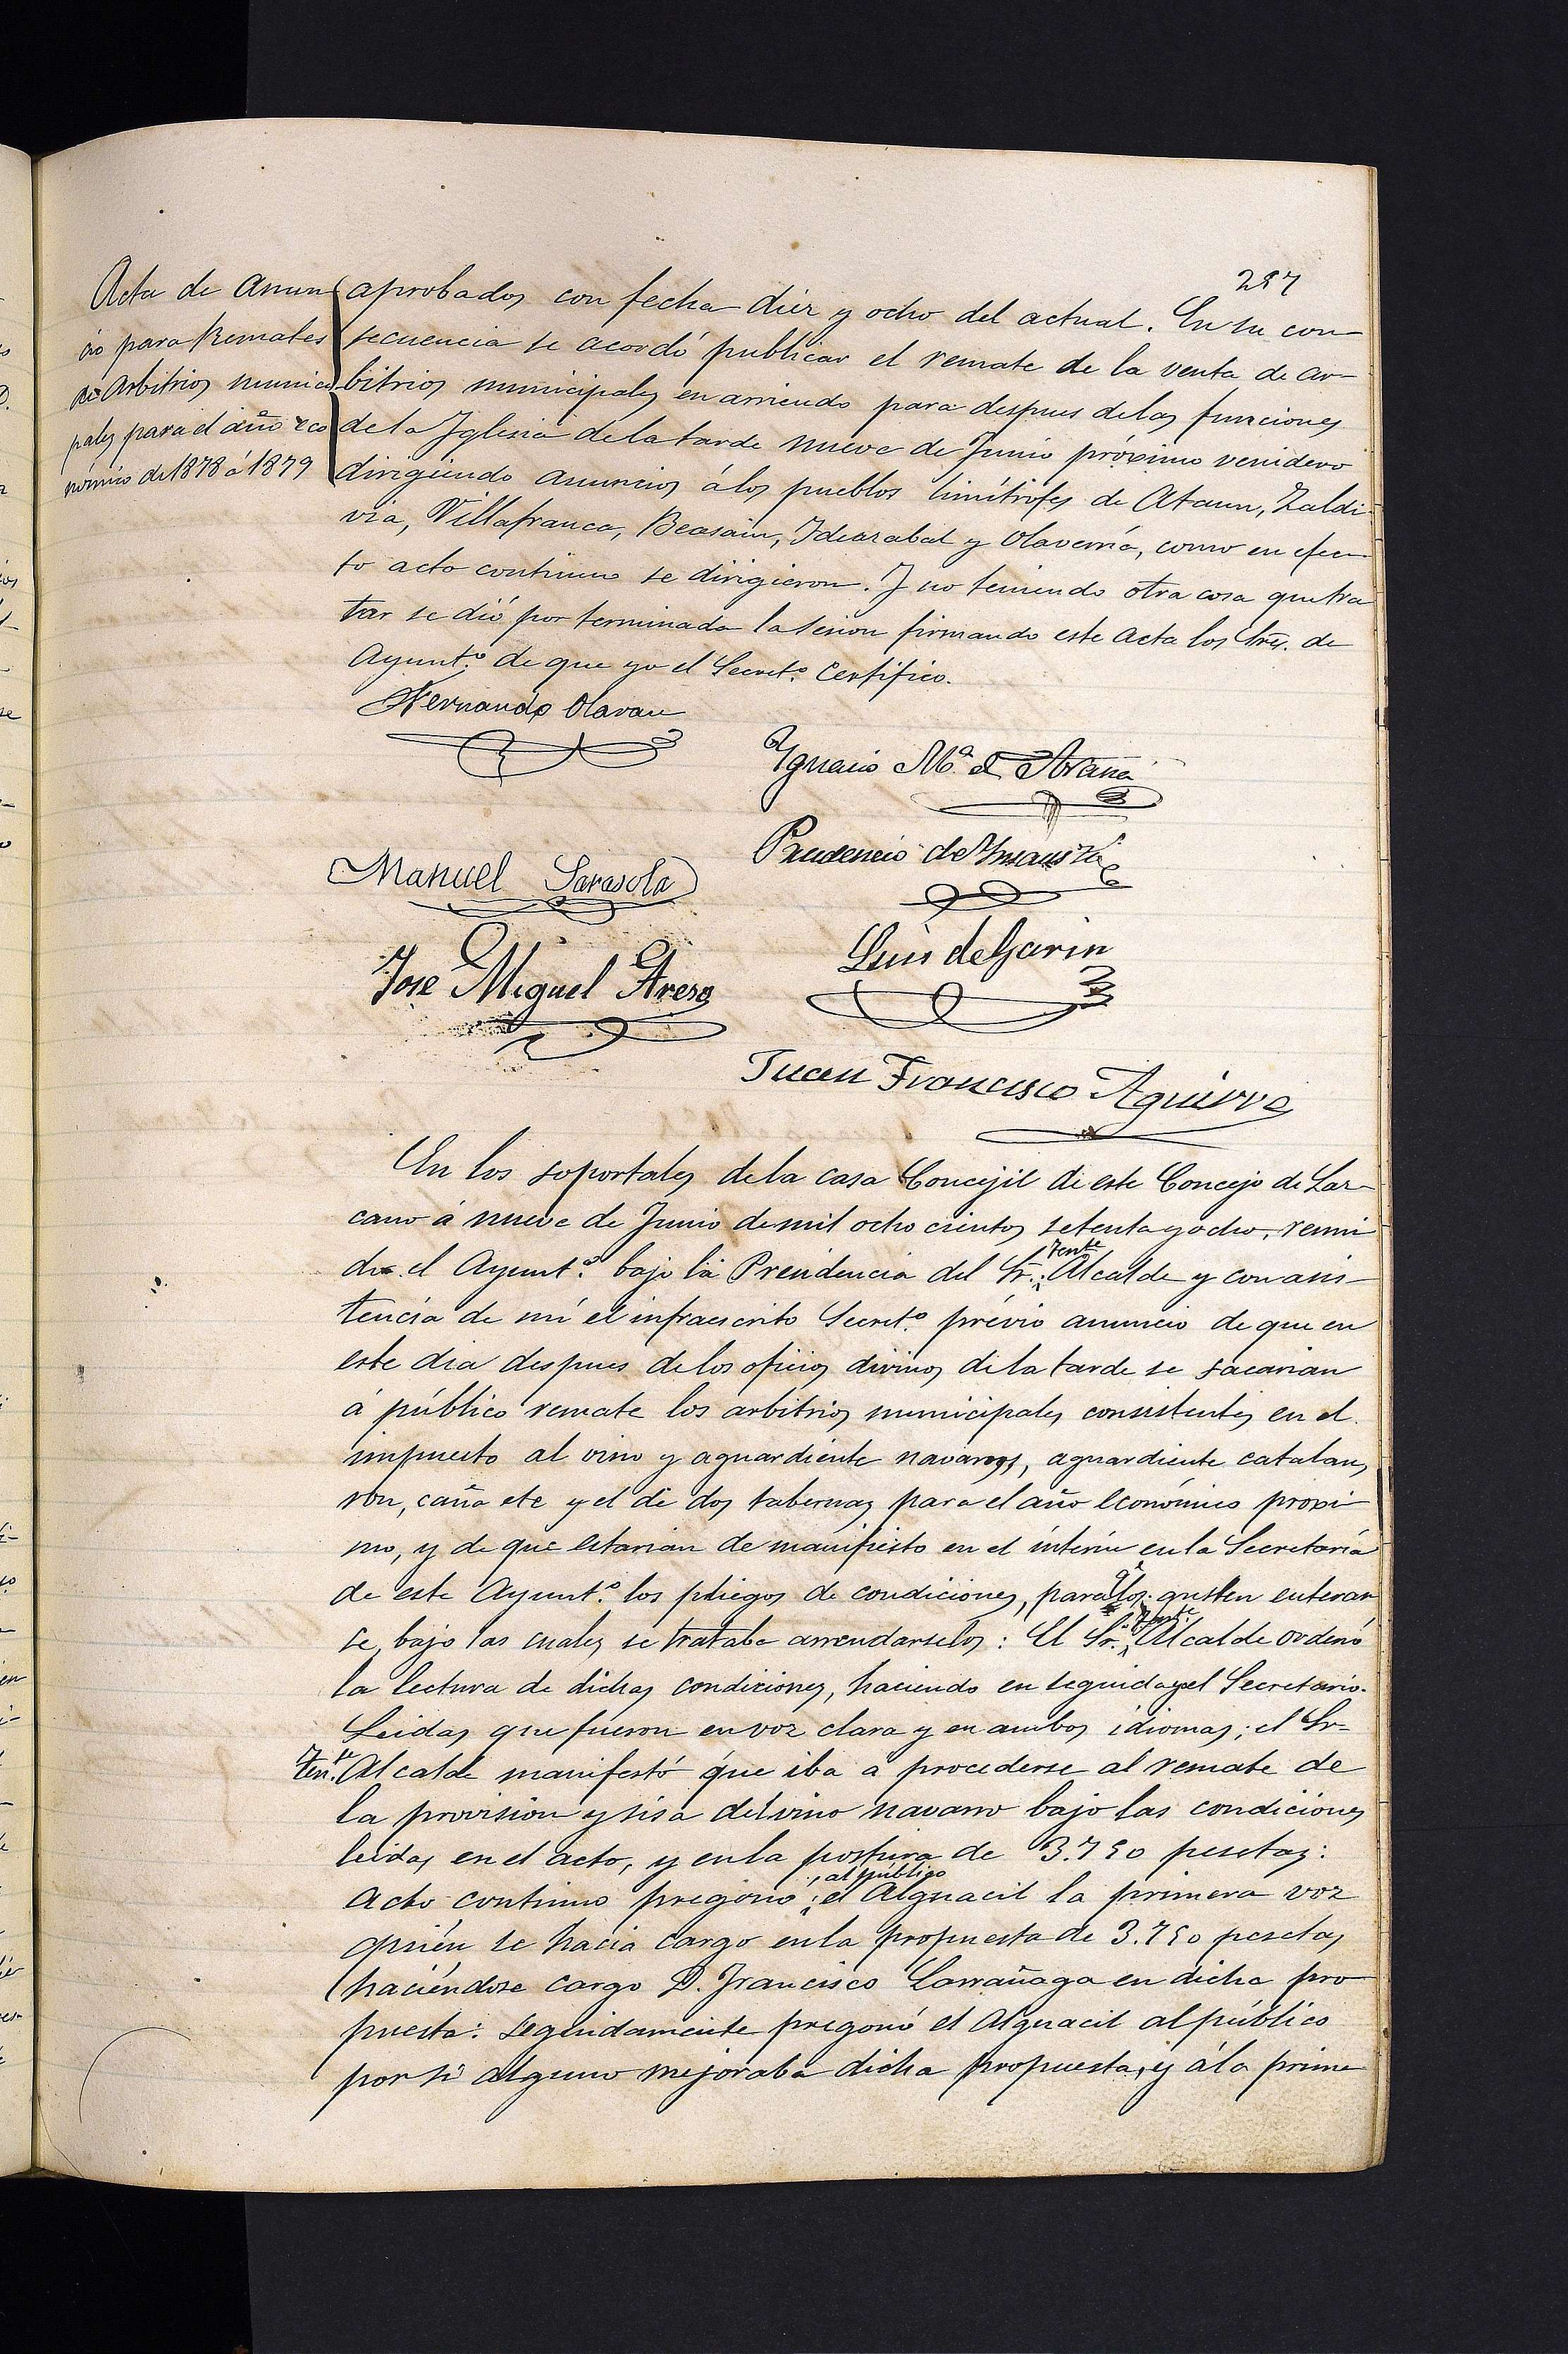 287
Acta de anun
cio para Remates
de Arbitrios munici
pales para el año eco
nómico de 1878 á 1879
aprobados con fecha diez y ocho del actual. En su con-
secuencia se acordó publicar el remate de la venta de ar-
bitrios municipales en arriendo para despues de las funciones
de la Iglesia de la tarde nueve de Junio próximo venidero
dirigiendo anuncios á los pueblos limítrofes de Ataun, Zaldi-
via, Villafranca, Beasain, Idiazabal y Olaverria, como en efec-
to acto continuo se dirigieron. Y no teniendo otra cosa que tra
tar se dió por terminada la sesion firmando este acta los Sres. de
Ayunt.º de que yo el Secret.º Certifico.
Fernando Olaran
Ignacio M.ª de Arana
Manuel Sarasola
Prudencio de Ynsausti
Jose Miguel Areso
Luis de Garin
Juan Francisco Aguirre
En los soportales de la casa Concejil de este Concejo de Laz-
cano á nueve de Junio de mil ocho cientos setenta y ocho, reuni
do el Ayunt.º bajo la Presidencia del Sr. Tente Alcalde y con asis-
tencia de mí el infraescrito Secret.º prévio anuncio de que en
este dia despues de los oficios divinos de la tarde se sacarian
á público remate los arbitrios municipales consistentes en el
impuesto al vino y aguardiente navarros, aguardiente catalan,
ron, caña etc y el de dos tabernas para el año económico proxi-
mo, y de que estarian de manifiesto en el interin en la Secretaría
de este Ayunt.º los pliegos de condiciones, para los q.e gusten enterar
se, bajo las cuales se trataba arrendarselos: El Sr. Tente Alcalde ordenó
la lectura de dichas condiciones, haciendo en seguida el Secretario.
Leidas que fueron en voz clara y en ambos idiomas; el Sr-
Ten.te Alcalde manifestó que iba á procederse al remate de
la provision y sisa del vino navarro bajo las condiciones
leidas en el acto, y en la postura de 3.750 pesetas:
Acto continuo pregonó, al público el Alguacil la primera voz
quién se hacia cargo en la propuesta de 3.750 pesetas,
haciéndose cargo D. Francisco Larrañaga en dicha pro
puesta: seguidamente pregonó el Alguacil al público
por si alguno mejoraba dicha propuesta, y á la prime